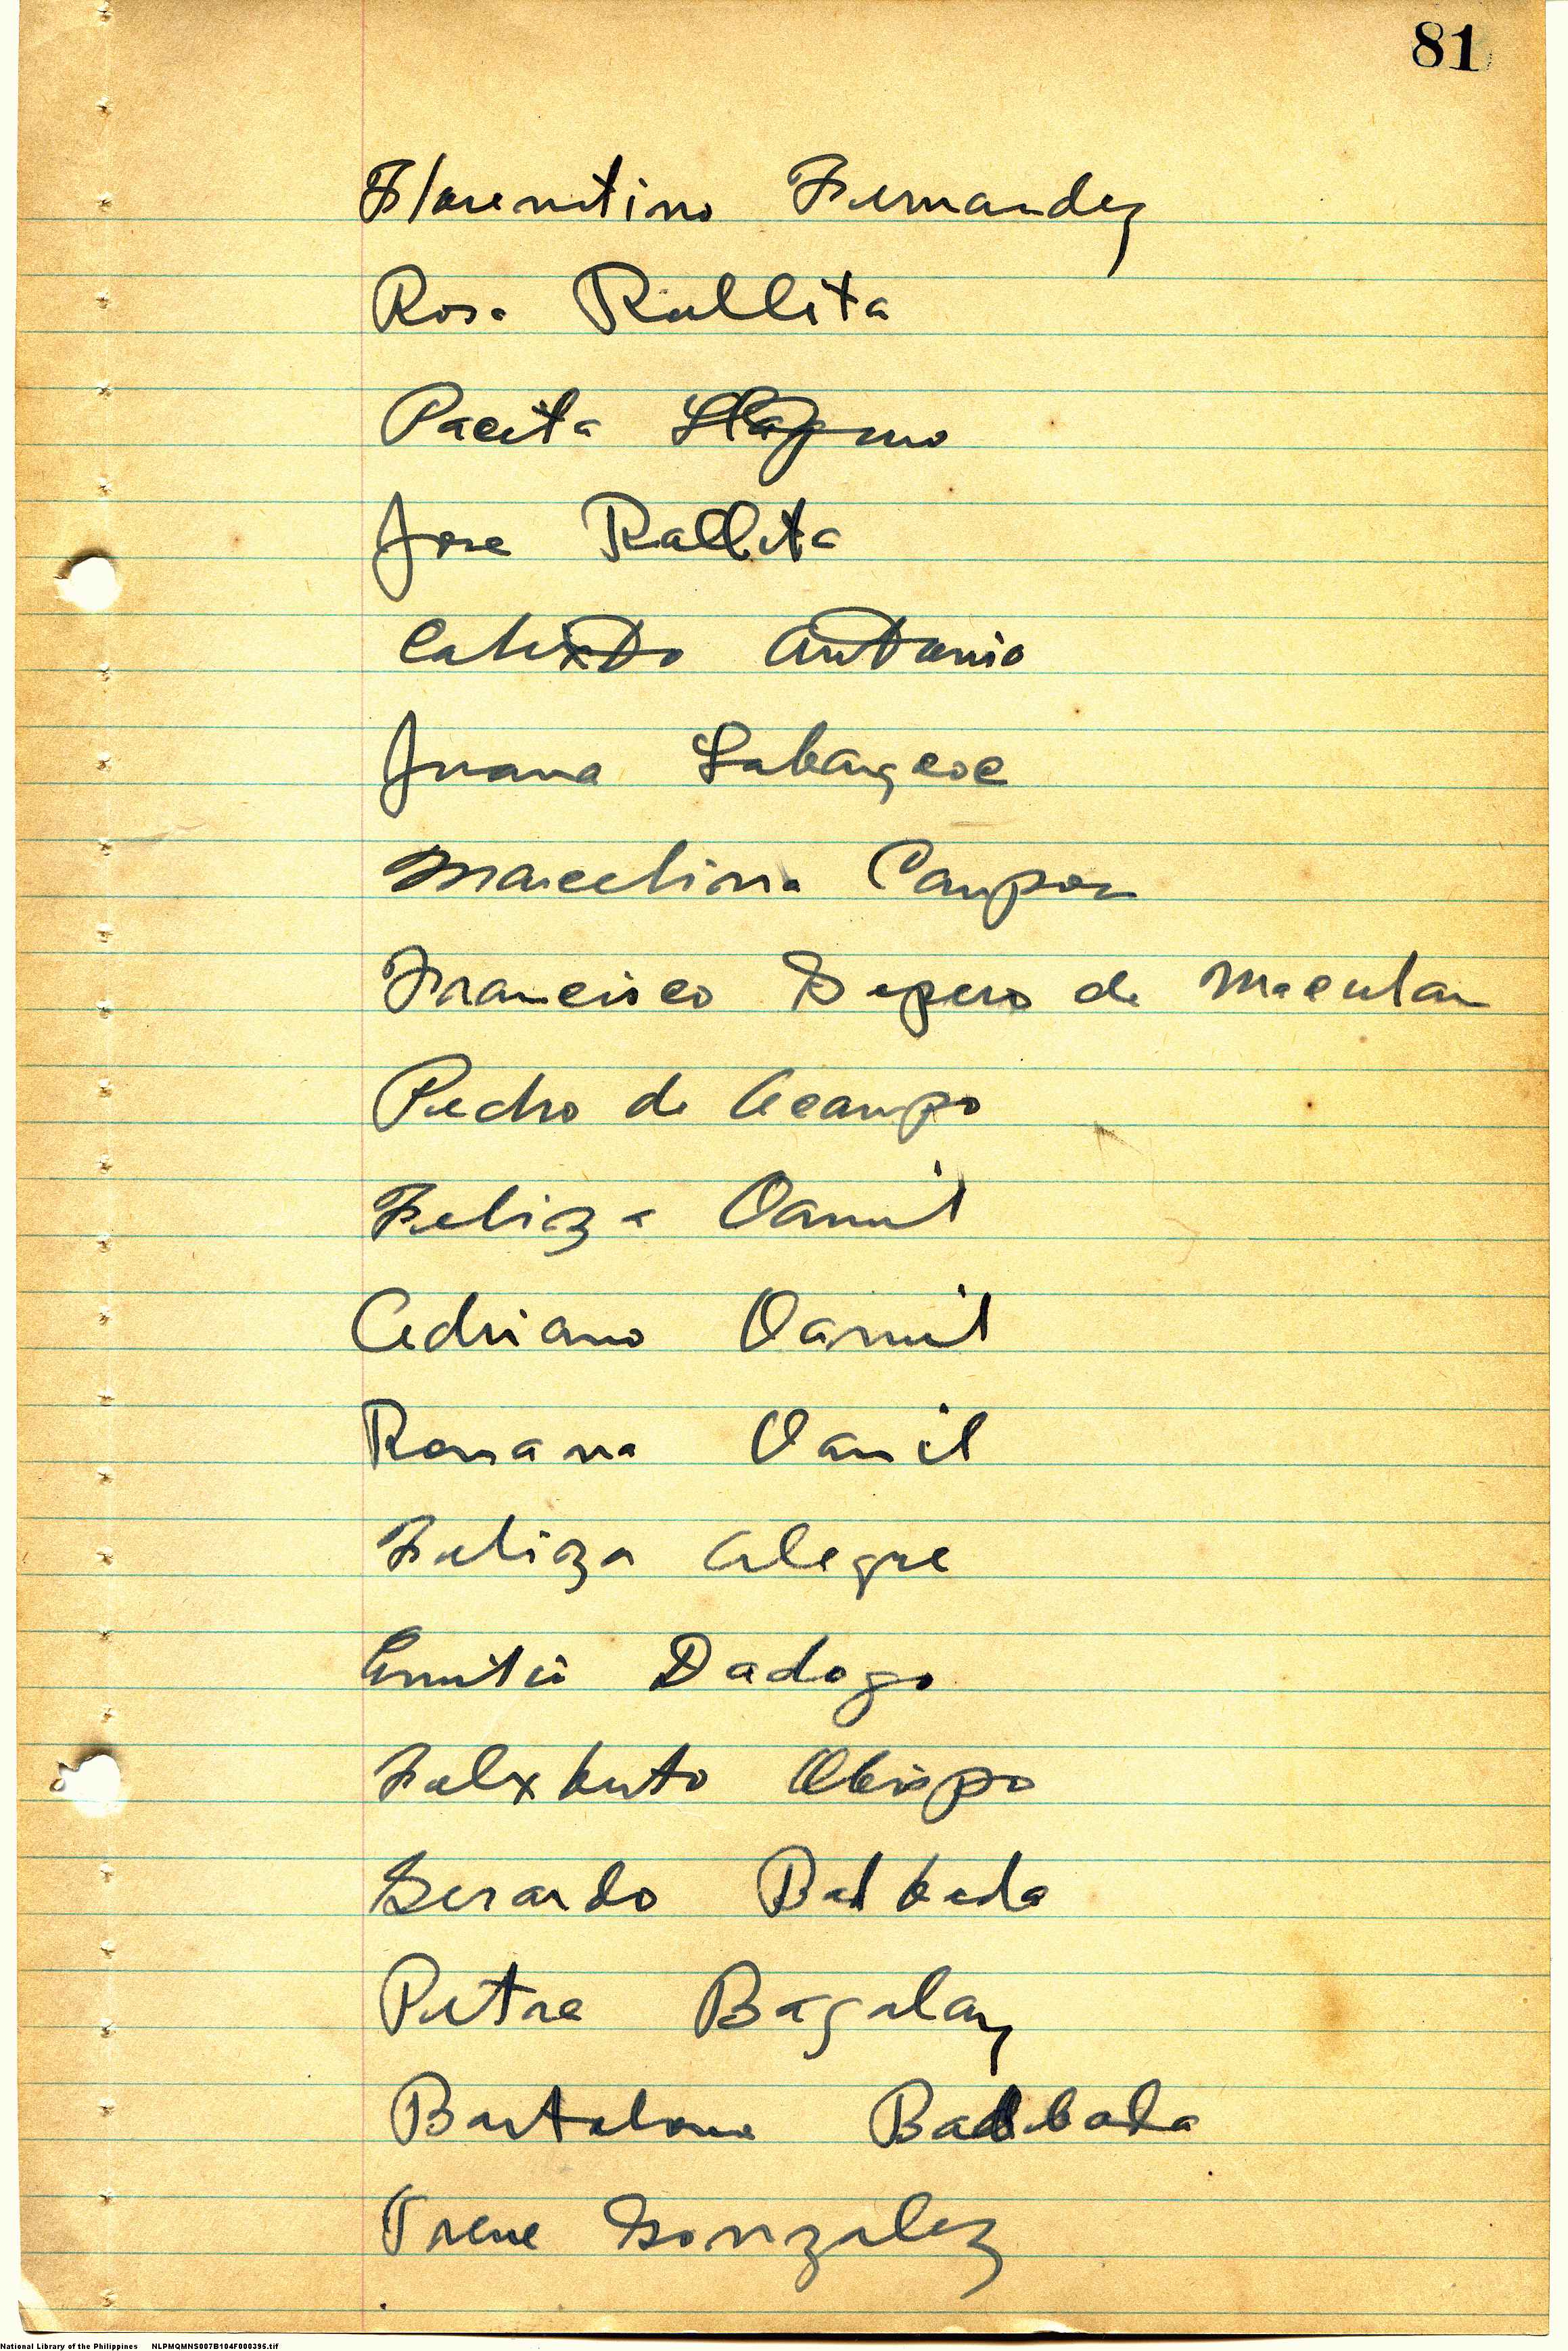 81
Florentino Fernandez
Rosa Rallita
Pacita Llaguno
Jose Rallita
Calixto Antonio
Juana
Marcelina Campos
Francisco de
Pedro de Ocampo
Feliza Oamil
Adriano Oamil
Romana Oamil
Feliza Alegre
Emilio Dadogo
Obispo
Gerardo Balbada
Petra Bagalay
Bartolome Badbada
Irene Gonzalez
National Library of the Philippines NLPMQMNS007B104F000395.tif